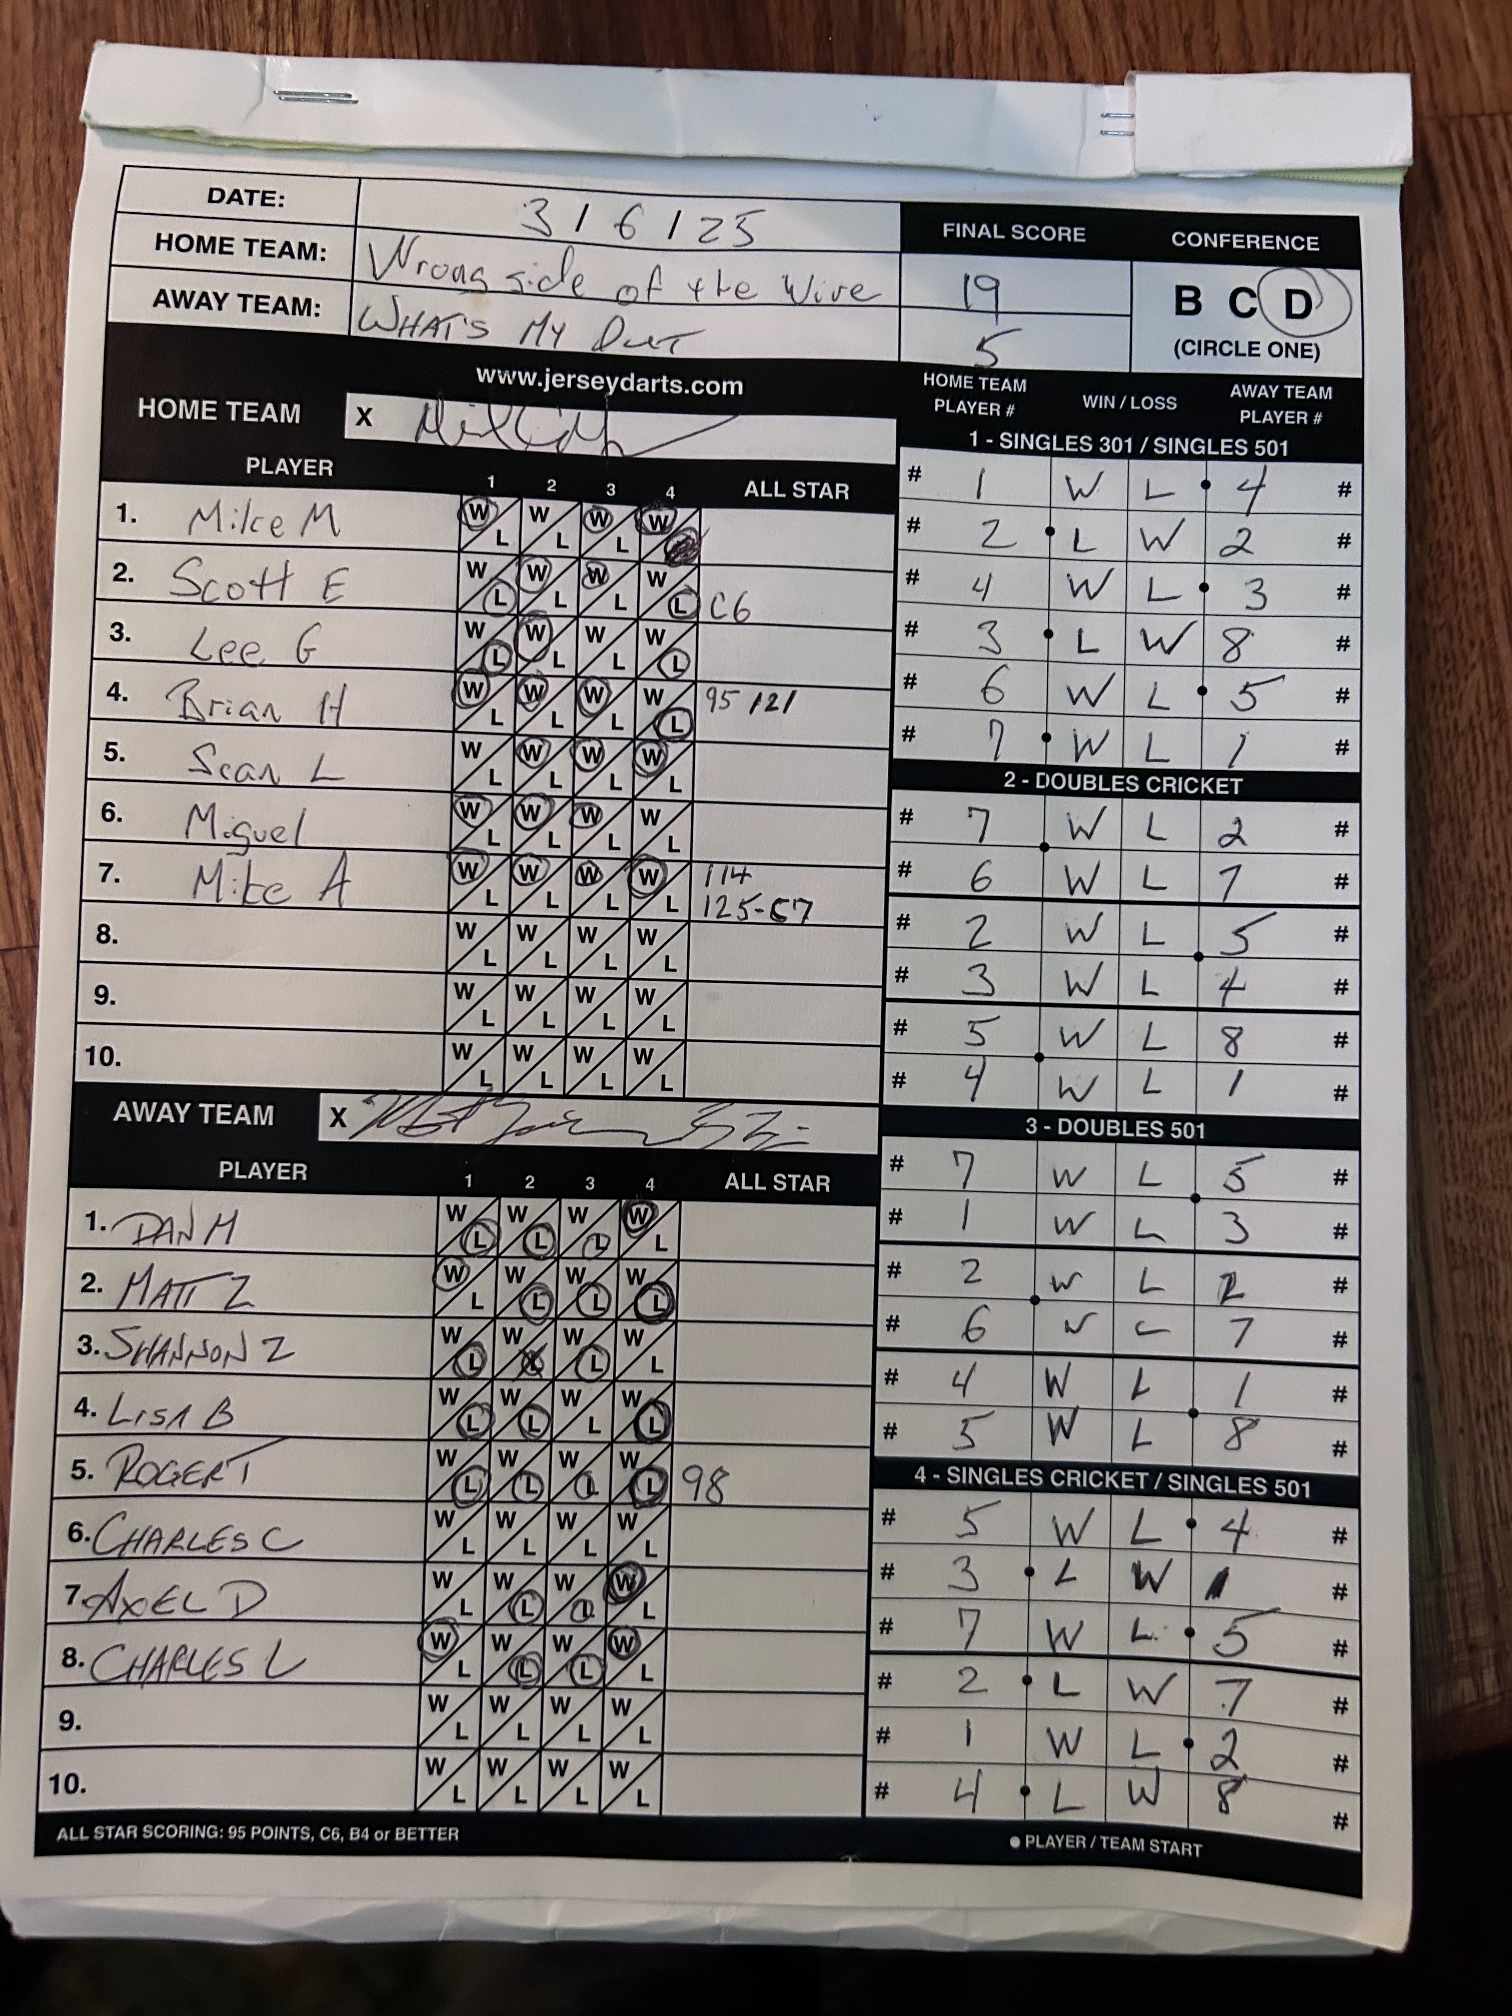 DATE: 3/6/25
FINAL SCORE CONFERENCE
HOME TEAM: Wrong side of the Wire 19
B C D
AWAY TEAM: WHAT'S MY OUT 5
(CIRCLE ONE)
www.jerseydarts.com
HOME TEAM PLAYER # WIN / LOSS AWAY TEAM PLAYER #
HOME TEAM X
1 - SINGLES 301 / SINGLES 501
PLAYER 1 2 3 4 ALL STAR
# 1 W L 4 #
# 2 L W 2 #
# 4 W L 3 #
# 3 L W 8 #
# 6 W L 5 #
# 7 W L 1 #
1. Mike M W L W L W L W
2. Scott E W L W L W L W L C6
3. Lee G W L W L W L W L
4. Brian H W L W L W L W L 95 121
5. Sean L W L W L W L W L
6. Miguel W L W L W L W L
7. Mike A W L W L W L W L 114
125-C7
8. W L W L W L W L
9. W L W L W L W L
10. W L W L W L W L
2 - DOUBLES CRICKET
# 7 W L 2 #
# 6 W L 7 #
# 2 W L 5 #
# 3 W L 4 #
# 5 W L 8 #
# 4 W L 1 #
AWAY TEAM X
PLAYER 1 2 3 4 ALL STAR
1. DAN M W L W L W L W L
2. MATT Z W L W L W L W L
3. SHANNON Z W L W L W L W L
4. LISA B W L W L W L W L
5. ROGER T W L W L W L W L 98
6. CHARLES C W L W L W L W L
7. AXEL D W L W L W L W L
8. CHARLES L W L W L W L W L
9. W L W L W L W L
10. W L W L W L W L
3 - DOUBLES 501
# 7 W L 5 #
# 1 W L 3 #
# 2 W L 2 #
# 6 W L 7 #
# 4 W L 1 #
# 5 W L 8 #
4 - SINGLES CRICKET / SINGLES 501
# 5 W L 4 #
# 3 L W 1 #
# 7 W L 5 #
# 2 L W 7 #
# 1 W L 2 #
# 4 L W 8 #
ALL STAR SCORING: 95 POINTS, C6, B4 or BETTER
● PLAYER / TEAM START